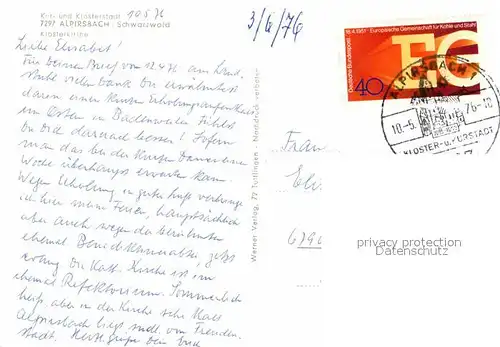 Kur- und Klosterstadt
7297 ALPIRSBACH · Schwarzwald
Klosterkirche
10.5.76
3/6/76
Liebe Elisabet!
Für deinen Brief vom 12.4.76 am
vielen Dank. Du erwähntest
darin einen kurzen Erholungsaufenthalt
in Badenweiler. Fühlst
Du Dich danach besser?
man das bei der kurzen
Woche überhaupt erwarten kann.
Wegen Erholung in guter Luft verbringe
ich hier meine Ferien, hauptsächlich
aber auch wegen der berühmten
ehemal. Benediktinerabtei, jetzt
evang. Die Kath. Kirche ist im
ehemal. Refektorium. Sommerlich
heiß, aber in der Kirche sehr kalt.
Alpirsbach liegt südl. von Freuden-
stadt. Herzl. Grüße Dein
Werner Verlag, 72 Tuttlingen · Nachdruck verboten
18.4.1951 · Europäische Gemeinschaft für Kohle und Stahl
Deutsche Bundespost
40
ALPIRSBACH 1
10.-5. 76-18
KLOSTER-u. KURSTADT
Frau
privacy protection
Datenschutz